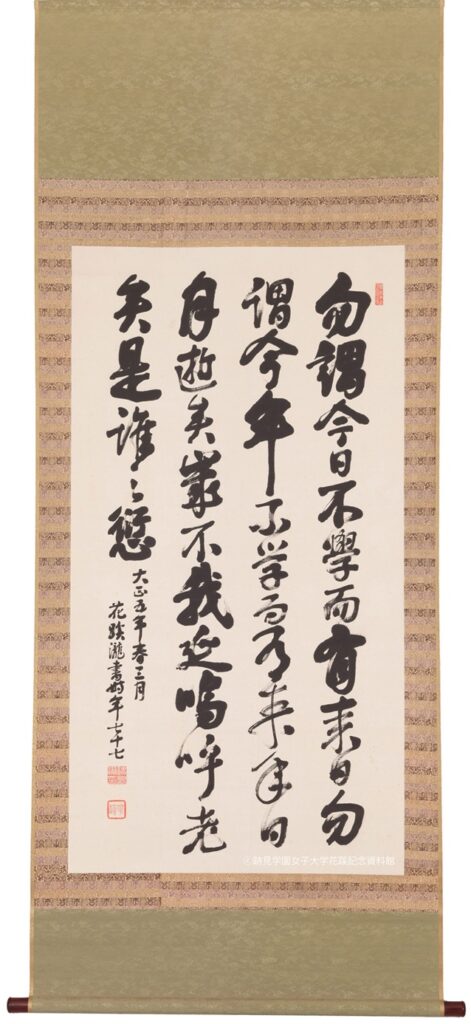 勿謂今日不學而有来日勿
謂今年不学而有来年日
月逝矣歳不我延嗚呼老
矣是誰之愆
大正五年春三月
花蹊瀧書時年七十七
ⓒ跡見学園女子大学花蹊記念資料館